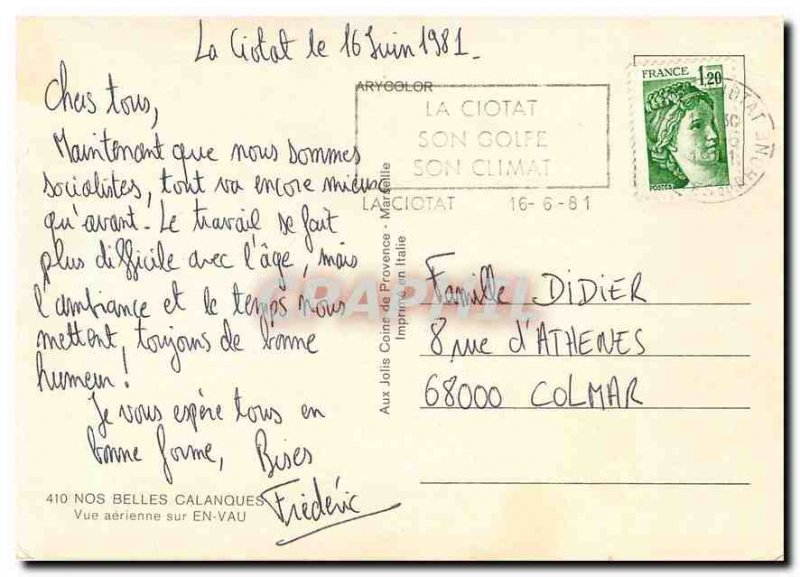 La Ciotat le 16 Juin 1981.
Chers tous,
Maintenant que nous sommes
socialistes, tout va encore mieux
qu'avant. Le travail se fait
plus difficile avec l'âge, mais
l'ambiance et le temps nous
mettent, toujours de bonne
humeur!
Je vous espère tous en
bonne forme, Bises
Frédéric
410 NOS BELLES CALANQUES
Vue aérienne sur EN-VAU
ARYCOLOR
LA CIOTAT
SON GOLFE
SON CLIMAT
LA CIOTAT 16-6-81
FRANCE 1,20
POSTES
Aux Jolis Coins de Provence - Marseille
Imprimé en Italie
Famille DIDIER
8 rue d'ATHENES
68000 COLMAR